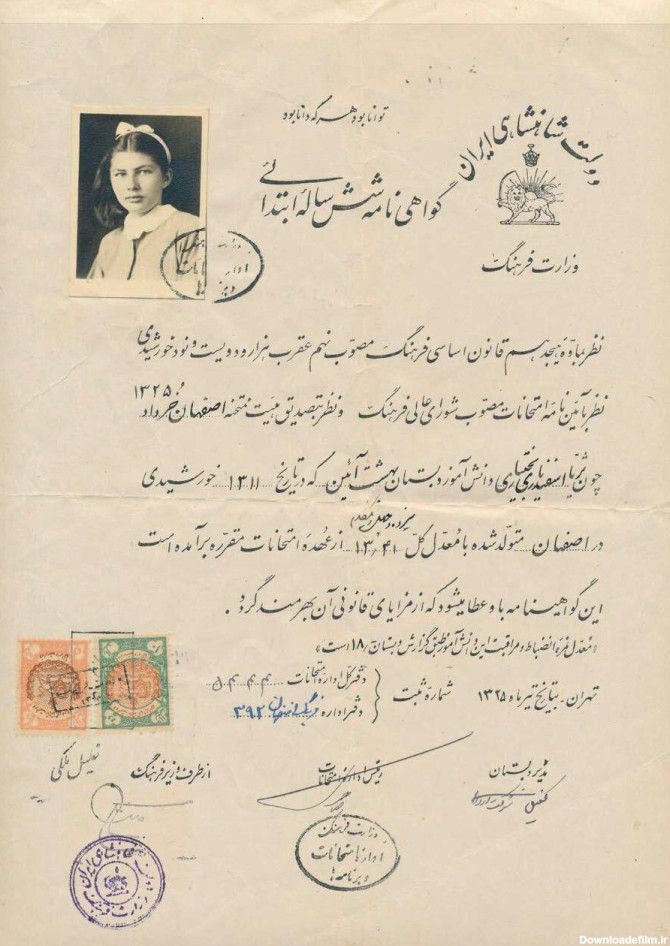 توانا بود هر که دانا بود
دولت شاهنشاهی ایران
گواهی نامه شش ساله ابتدائی
وزارت فرهنگ
نظر بماده هیجدهم قانون اساسی فرهنگ مصوب نهم عقرب هزار و دویست و نود خورشیدی
نظر بآئین نامه امتحانات مصوب شورای عالی فرهنگ و نظر بتصدیق هیئت ممتحنه اصفهان خرداد ۱۳۲۵
چون ثریا اسفندیاری بختیاری دانش آموز دبستان بهشت آئین که در تاریخ ۱۳۱۱ خورشیدی
در اصفهان متولد شده با معدل کل ۱۳٫۴۱ از عهده امتحانات مقرره برآمده است
این گواهینامه باو عطا میشود که از مزایای قانونی آن بهره مند گردد.
«معدل نمره انضباط و مراقبت این دانش آموز طبق گزارش دبستان ۱۸ است»
تهران - بتاریخ تیر ماه ۱۳۲۵ شماره ثبت
دفتر کل اداره امتحانات
دفتر اداره فرهنگ اصفهان ۳۹۲
مدیر دبستان
کفیل
رئیس اداره امتحانات
از طرف وزیر فرهنگ
وزارت فرهنگ
اداره امتحانات
و برنامه ها
دولت شاهنشاهی ایران
وزارت فرهنگ
Downloadefilm.ir